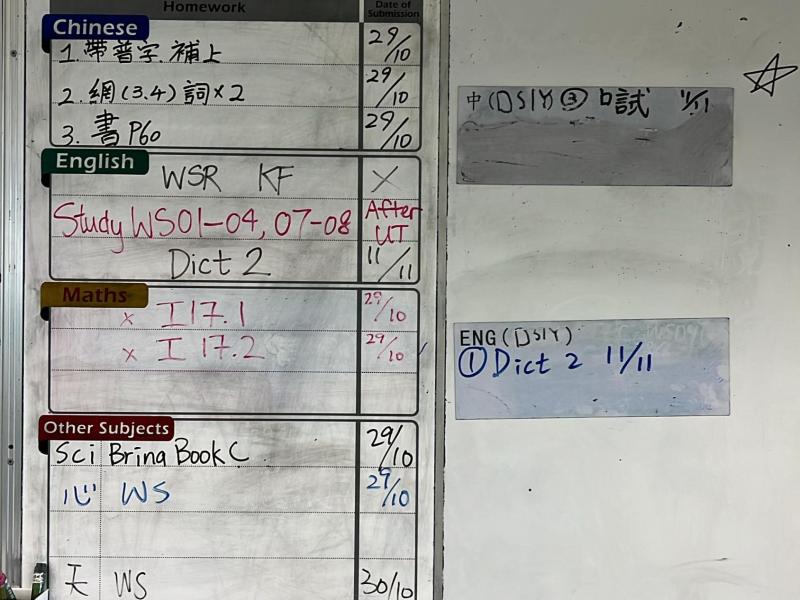 Homework Date of Submission
Chinese
1. 帶普字.補上 29/10
2. 網(3.4)詞×2 29/10
3. 書 P60 29/10
English
WSR KF ×
Study WS01-04, 07-08 After UT
Dict 2 11/11
Maths
× I 17.1 29/10
× I 17.2 29/10
Other Subjects
Sci Bring Book C 29/10
心 WS 29/10
天 WS 30/10
中 (DSIY) ③ 口試 11/11
ENG (DSIY)
① Dict 2 11/11